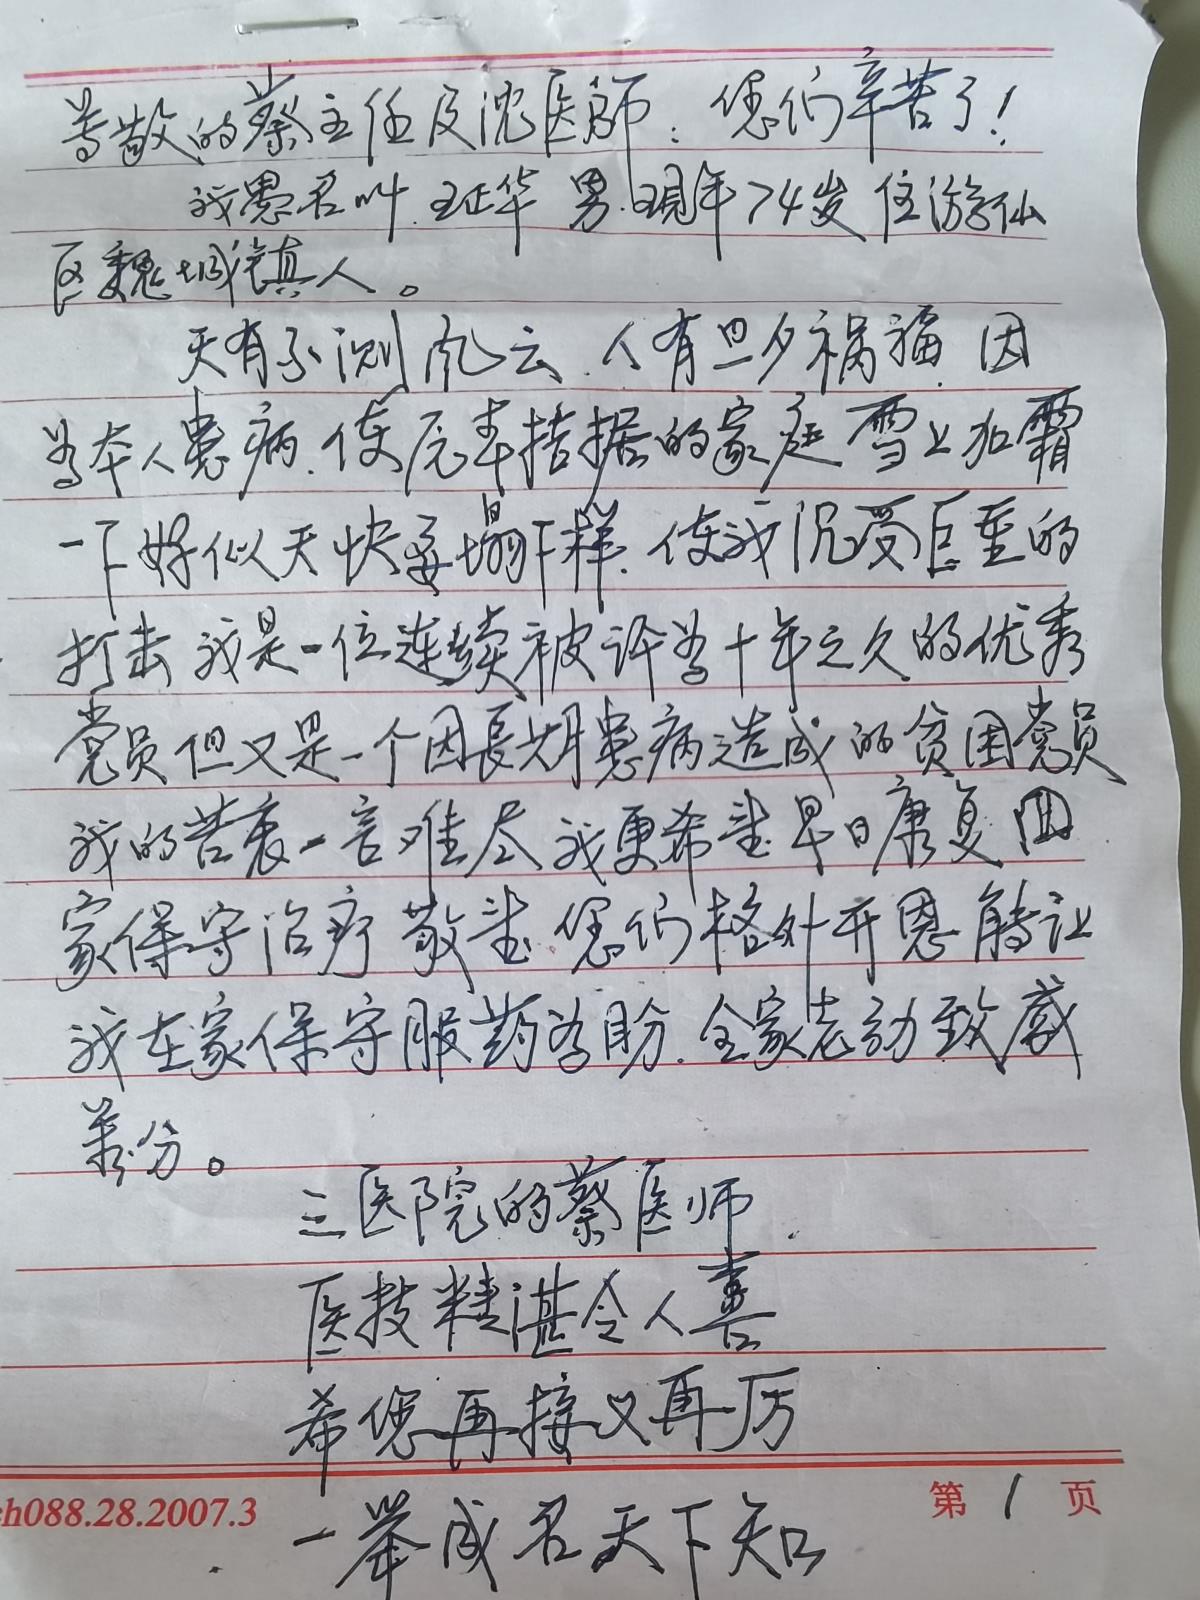 尊敬的蔡主任及沈医師：您们辛苦了！
我愚名叫.王正华 男.現年74岁 住游仙
区魏城镇人。
天有不测风云.人有旦夕祸福.因
为本人患病.使原本拮据的家庭雪上加霜
一下好似天快要塌下样.使我沉受巨重的
打击 我是一位连续被评为十年之久的优秀
党员但又是一个因長期患病造成的贫困党员
我的苦衷一言难尽 我更希望早日康复回
家保守治疗 敬望您们格外开恩能让
我在家保守服药为盼.全家老幼致感
万分。
三医院的蔡医师.
医技精湛令人喜
希您再接义再厉
ch088.28.2007.3
第 1 页
一举成名天下知